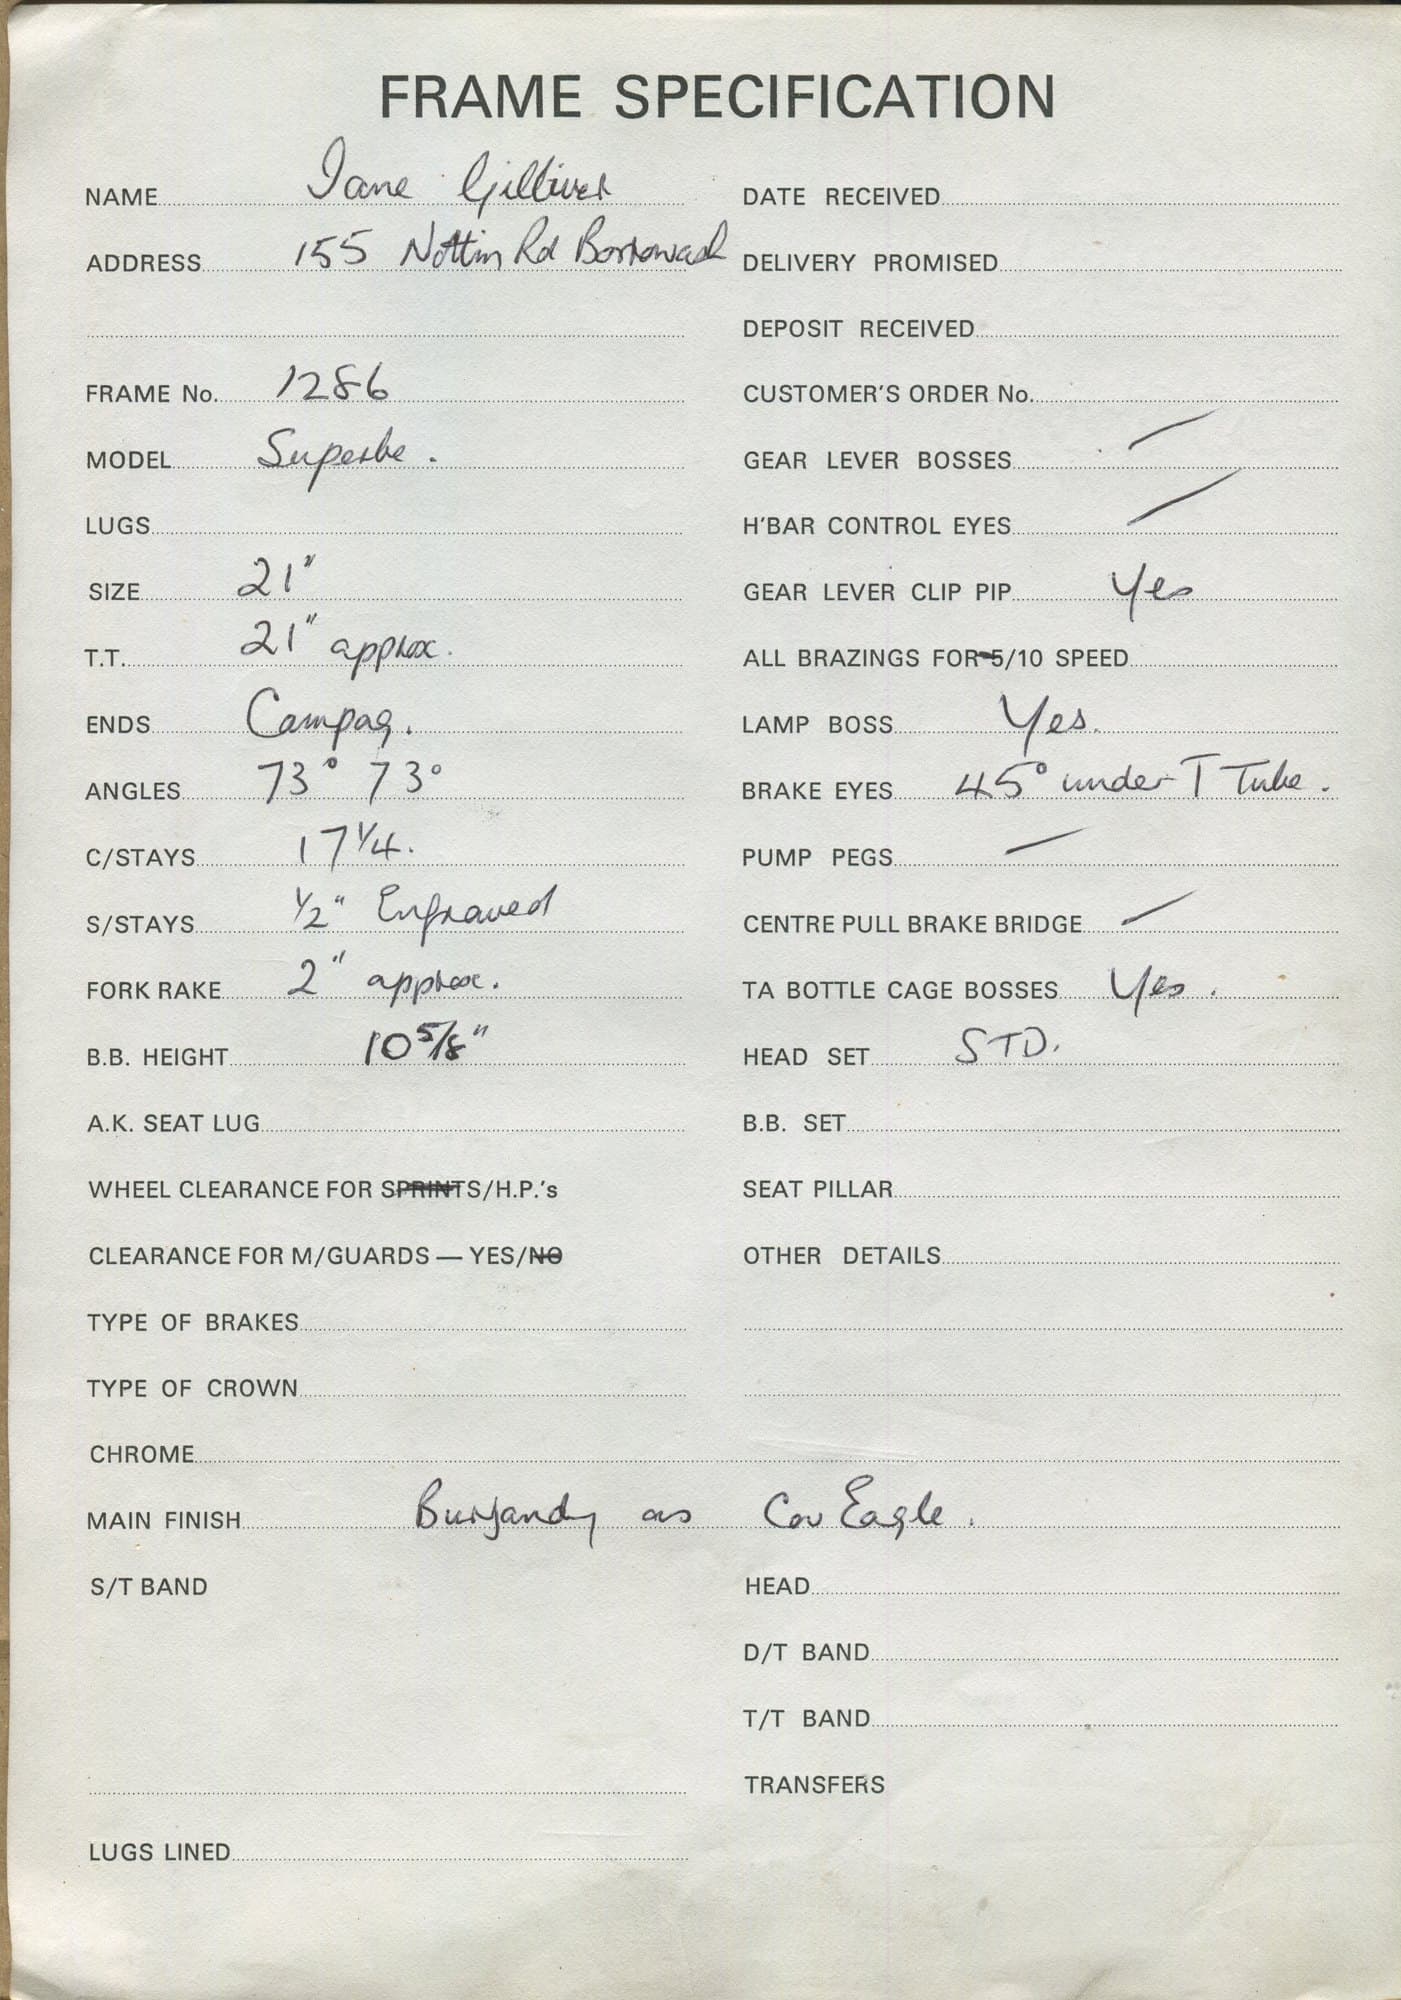 FRAME SPECIFICATION
NAME Jane Gilliver
ADDRESS 155 Nottm Rd Borrowash
FRAME No. 1286
MODEL Superbe.
LUGS
SIZE 21"
T.T. 21" approx.
ENDS Campag.
ANGLES 73° 73°
C/STAYS 17 1/4.
S/STAYS 1/2" Engraved
FORK RAKE 2" approx.
B.B. HEIGHT 10 5/8"
A.K. SEAT LUG
WHEEL CLEARANCE FOR SPRINTS/H.P.'s
CLEARANCE FOR M/GUARDS — YES/NO
TYPE OF BRAKES
TYPE OF CROWN
DATE RECEIVED
DELIVERY PROMISED
DEPOSIT RECEIVED
CUSTOMER'S ORDER No.
GEAR LEVER BOSSES —
H'BAR CONTROL EYES —
GEAR LEVER CLIP PIP Yes
ALL BRAZINGS FOR 5/10 SPEED
LAMP BOSS Yes.
BRAKE EYES 45° under T Tube.
PUMP PEGS —
CENTRE PULL BRAKE BRIDGE —
TA BOTTLE CAGE BOSSES Yes.
HEAD SET STD.
B.B. SET
SEAT PILLAR
OTHER DETAILS
CHROME
MAIN FINISH Burgandy as Cov Eagle.
S/T BAND
LUGS LINED
HEAD
D/T BAND
T/T BAND
TRANSFERS